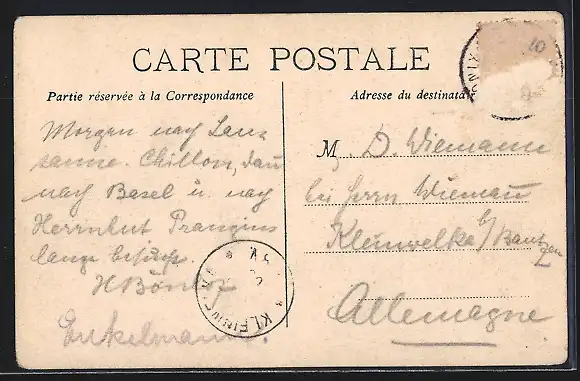 CARTE POSTALE
Partie réservée à la Correspondance
Adresse du destinata
Morgen nach Lau
sanne. Chillon, dann
nach Basel u. nach
Herrnhut Prangins
lange
H
Enkelmann.
M D. Wiemann
bei Herrn Wiemann
Kleinwelka b/Bautzen
Allemagne
KLEINWELKA